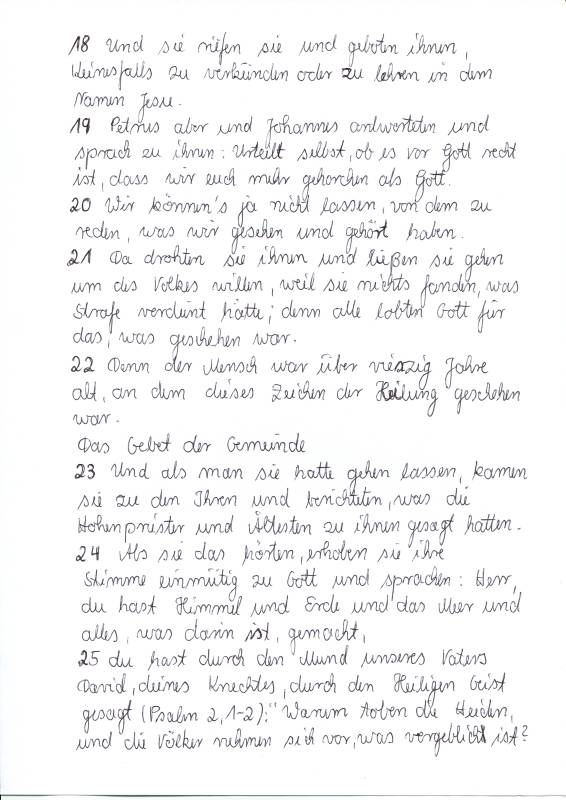 18 Und sie riefen sie und geboten ihnen,
keinesfalls zu verkünden oder zu lehren in dem
Namen Jesu.
19 Petrus aber und Johannes antworteten und
sprach zu ihnen: Urteilt selbst, ob es vor Gott recht
ist, dass wir euch mehr gehorchen als Gott.
20 Wir können's ja nicht lassen, von dem zu
reden, was wir gesehen und gehört haben.
21 Da drohten sie ihnen und ließen sie gehen
um des Volkes willen, weil sie nichts fanden, was
Strafe verdient hätte; denn alle lobten Gott für
das, was geschehen war.
22 Denn der Mensch war über vierzig Jahre
alt, an dem dieses Zeichen der Heilung geschehen
war.
Das Gebet der Gemeinde
23 Und als man sie hatte gehen lassen, kamen
sie zu den Ihren und berichteten, was die
Hohenpriester und Ältesten zu ihnen gesagt hatten.
24 Als sie das hörten, erhoben sie ihre
Stimme einmütig zu Gott und sprachen: Herr,
du hast Himmel und Erde und das Meer und
alles, was darin ist, gemacht,
25 du hast durch den Mund unseres Vaters
David, deines Knechtes, durch den Heiligen Geist
gesagt (Psalm 2,1-2): "Warum toben die Heiden,
und die Völker nehmen sich vor, was vergeblich ist?